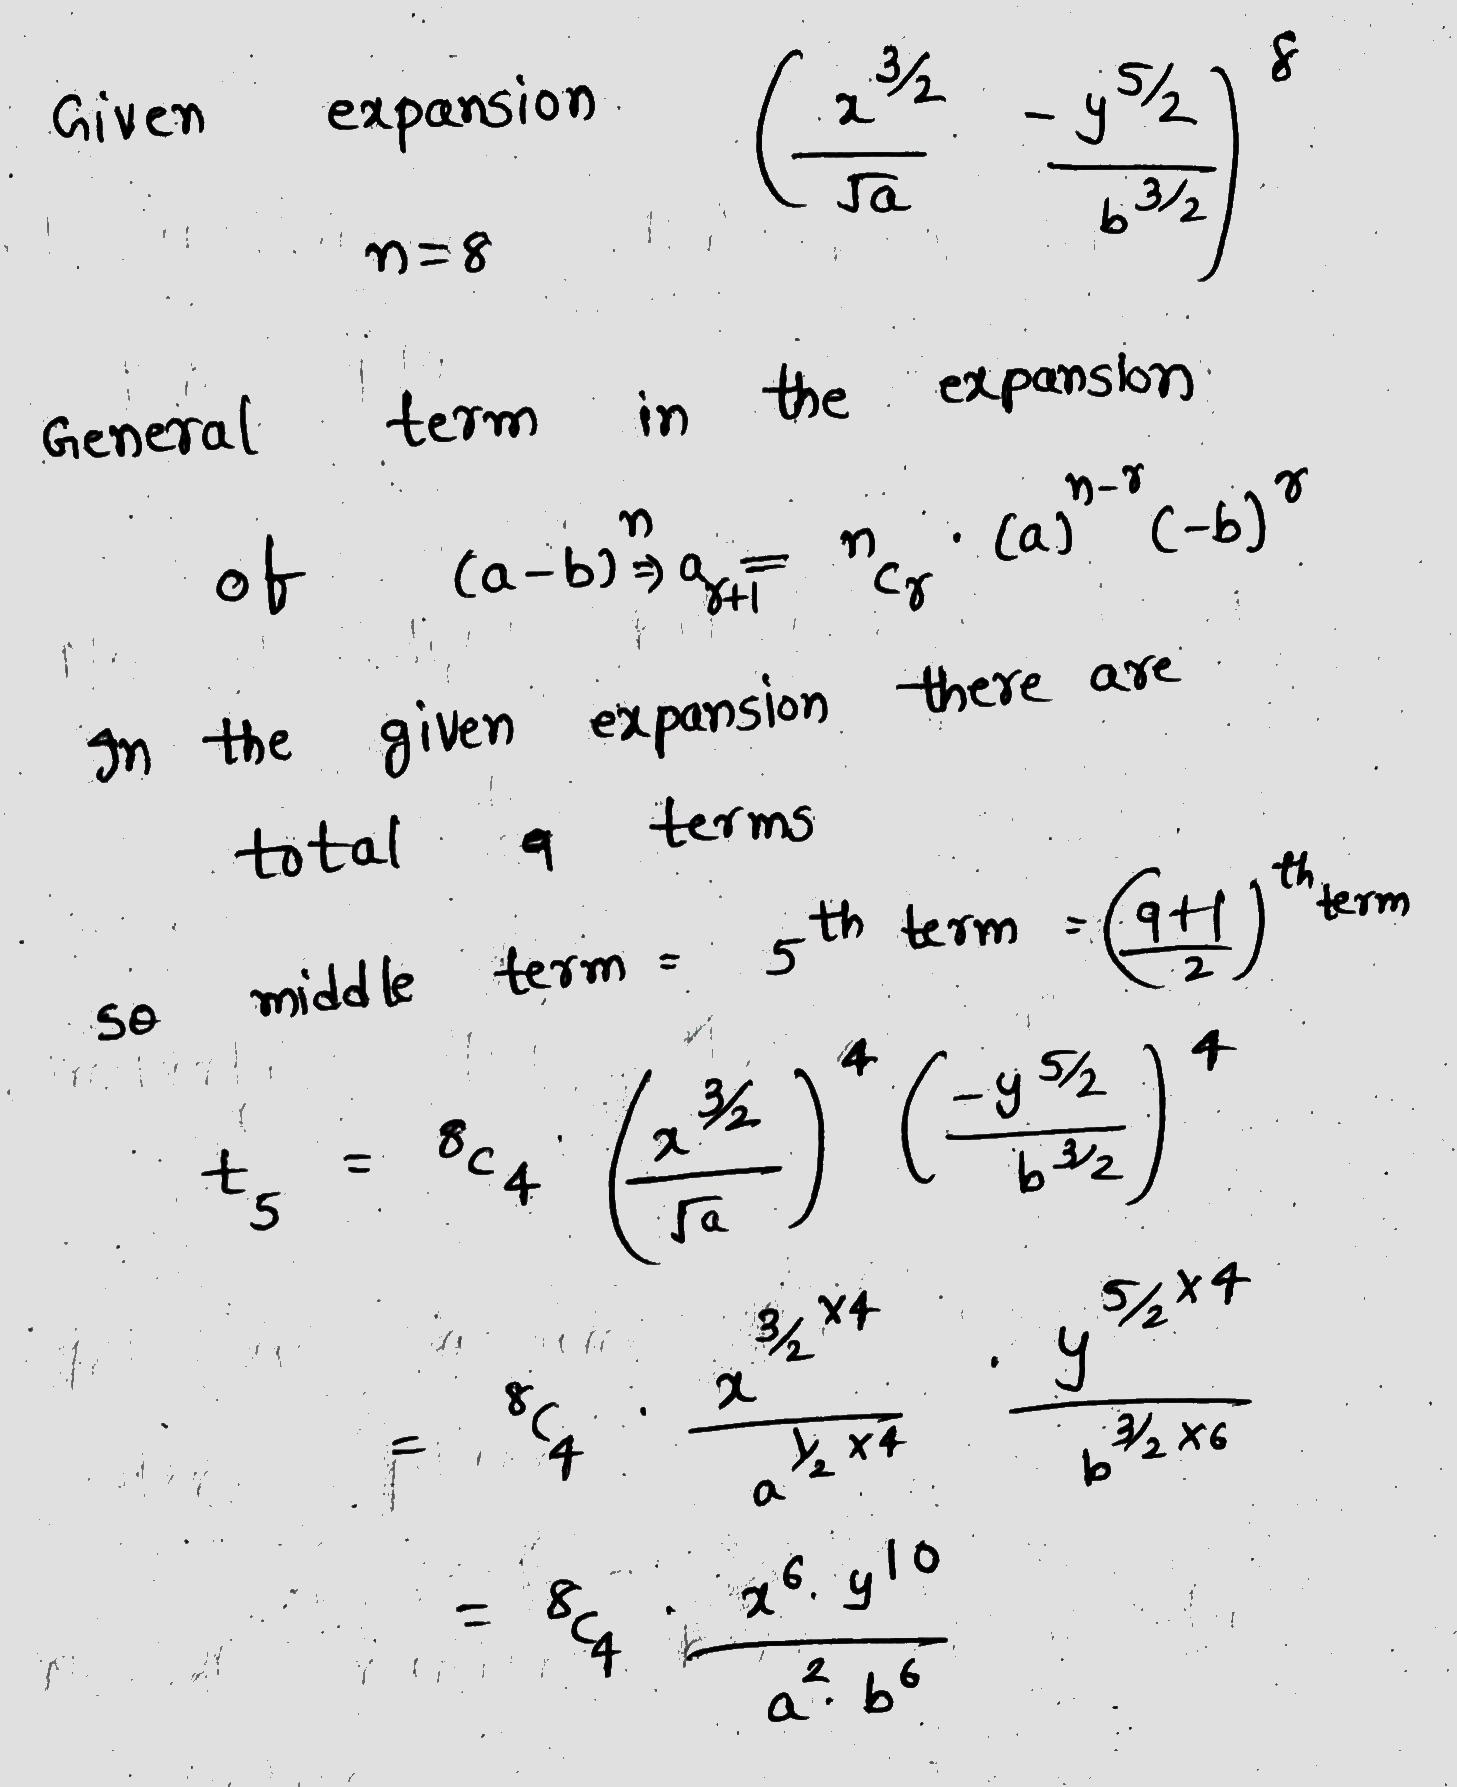 Given expansion (x^3/2 / √a - y^5/2 / b^3/2)^8
n=8
General term in the expansion
of (a-b)^n ⇒ a_r+1 = ^nC_r · (a)^n-r (-b)^r
In the given expansion there are
total 9 terms
so middle term = 5^th term = (9+1 / 2)^th term
t_5 = ^8C_4 · (x^3/2 / √a)^4 (-y^5/2 / b^3/2)^4
= ^8C_4 · x^3/2 ×4 / a^1/2 ×4 · y^5/2 ×4 / b^3/2 ×6
= ^8C_4 · x^6 . y^10 / a^2 . b^6